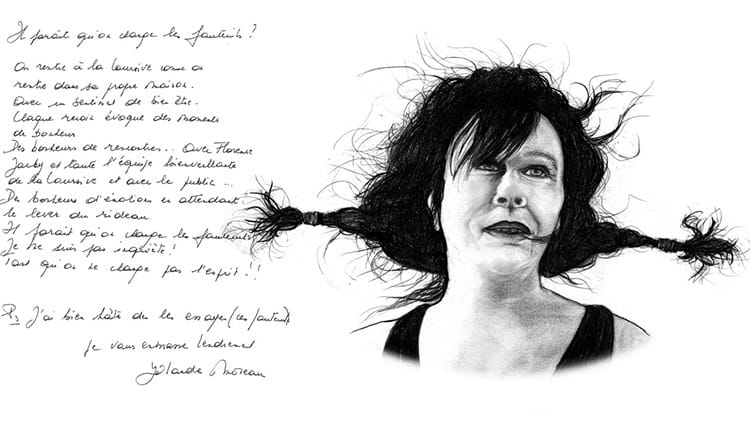 Il paraît qu'on change les fauteuils ?
On rentre à la Coursive comme on
rentre dans sa propre maison.
Avec un sentiment de bien être.
Chaque recoin évoque des moments
de bonheur
Des bonheurs de rencontres... Avec Florence
et toute l'équipe bienveillante
de la Coursive et avec le public...
Des bonheurs d'émotion en attendant
le lever du rideau.
Il paraît qu'on change les fauteuils
Je ne suis pas inquiète !
Tant qu'on ne change pas l'esprit !!
PS J'ai bien hâte de les essayer (ces fauteuils)
Je vous embrasse tendrement
Yolande Moreau